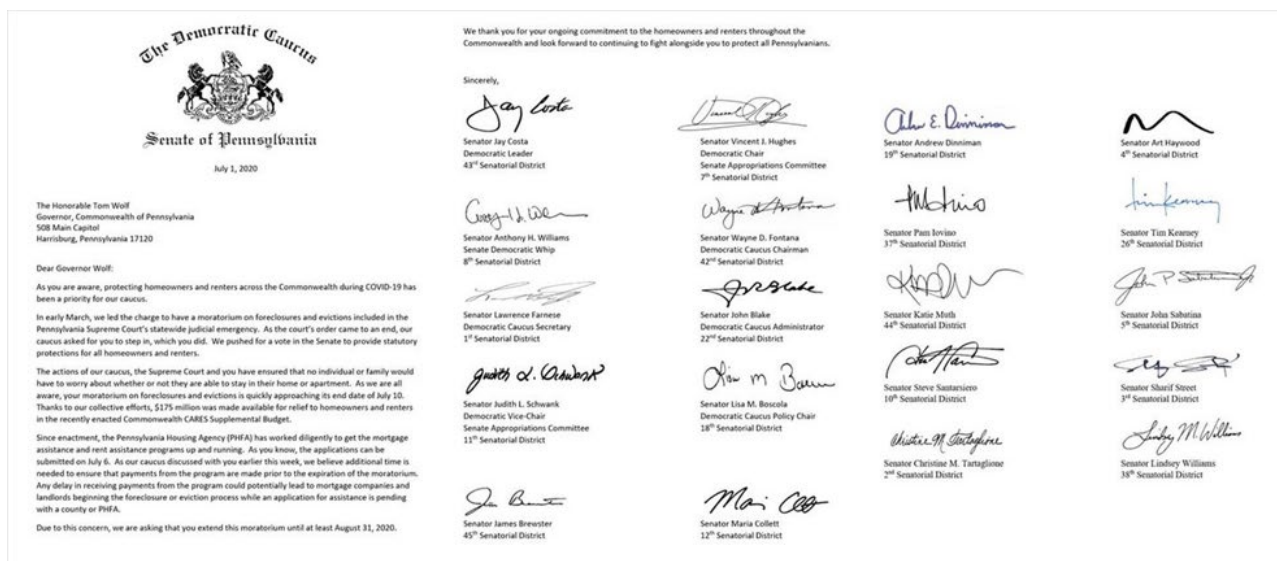 The Democratic Caucus
Senate of Pennsylvania
July 1, 2020
The Honorable Tom Wolf
Governor, Commonwealth of Pennsylvania
508 Main Capitol
Harrisburg, Pennsylvania 17120
Dear Governor Wolf:
As you are aware, protecting homeowners and renters across the Commonwealth during COVID-19 has
been a priority for our caucus.
In early March, we led the charge to have a moratorium on foreclosures and evictions included in the
Pennsylvania Supreme Court's statewide judicial emergency. As the court's order came to an end, our
caucus asked for you to step in, which you did. We pushed for a vote in the Senate to provide statutory
protections for all homeowners and renters.
The actions of our caucus, the Supreme Court and you have ensured that no individual or family would
have to worry about whether or not they are able to stay in their home or apartment. As we are all
aware, your moratorium on foreclosures and evictions is quickly approaching its end date of July 10.
Thanks to our collective efforts, $175 million was made available for relief to homeowners and renters
in the recently enacted Commonwealth CARES Supplemental Budget.
Since enactment, the Pennsylvania Housing Agency (PHFA) has worked diligently to get the mortgage
assistance and rent assistance programs up and running. As you know, the applications can be
submitted on July 6. As our caucus discussed with you earlier this week, we believe additional time is
needed to ensure that payments from the program are made prior to the expiration of the moratorium.
Any delay in receiving payments from the program could potentially lead to mortgage companies and
landlords beginning the foreclosure or eviction process while an application for assistance is pending
with a county or PHFA.
Due to this concern, we are asking that you extend this moratorium until at least August 31, 2020.
We thank you for your ongoing commitment to the homeowners and renters throughout the
Commonwealth and look forward to continuing to fight alongside you to protect all Pennsylvanians.
Sincerely,
Jay Costa
Senator Jay Costa
Democratic Leader
43rd Senatorial District
Senator Vincent J. Hughes
Democratic Chair
Senate Appropriations Committee
7th Senatorial District
Senator Anthony H. Williams
Senate Democratic Whip
8th Senatorial District
Senator Wayne D. Fontana
Democratic Caucus Chairman
42nd Senatorial District
Senator Lawrence Farnese
Democratic Caucus Secretary
1st Senatorial District
Senator John Blake
Democratic Caucus Administrator
22nd Senatorial District
Judith L. Schwank
Senator Judith L. Schwank
Democratic Vice-Chair
Senate Appropriations Committee
11th Senatorial District
Senator Lisa M. Boscola
Democratic Caucus Policy Chair
18th Senatorial District
Senator James Brewster
45th Senatorial District
Senator Maria Collett
12th Senatorial District
Andrew E. Dinniman
Senator Andrew Dinniman
19th Senatorial District
Senator Art Haywood
4th Senatorial District
Senator Pam Iovino
37th Senatorial District
Tim Kearney
Senator Tim Kearney
26th Senatorial District
Senator Katie Muth
44th Senatorial District
John P. Sabatina Jr.
Senator John Sabatina
5th Senatorial District
Senator Steve Santarsiero
10th Senatorial District
Senator Sharif Street
3rd Senatorial District
Christine M. Tartaglione
Senator Christine M. Tartaglione
2nd Senatorial District
Lindsey M. Williams
Senator Lindsey Williams
38th Senatorial District